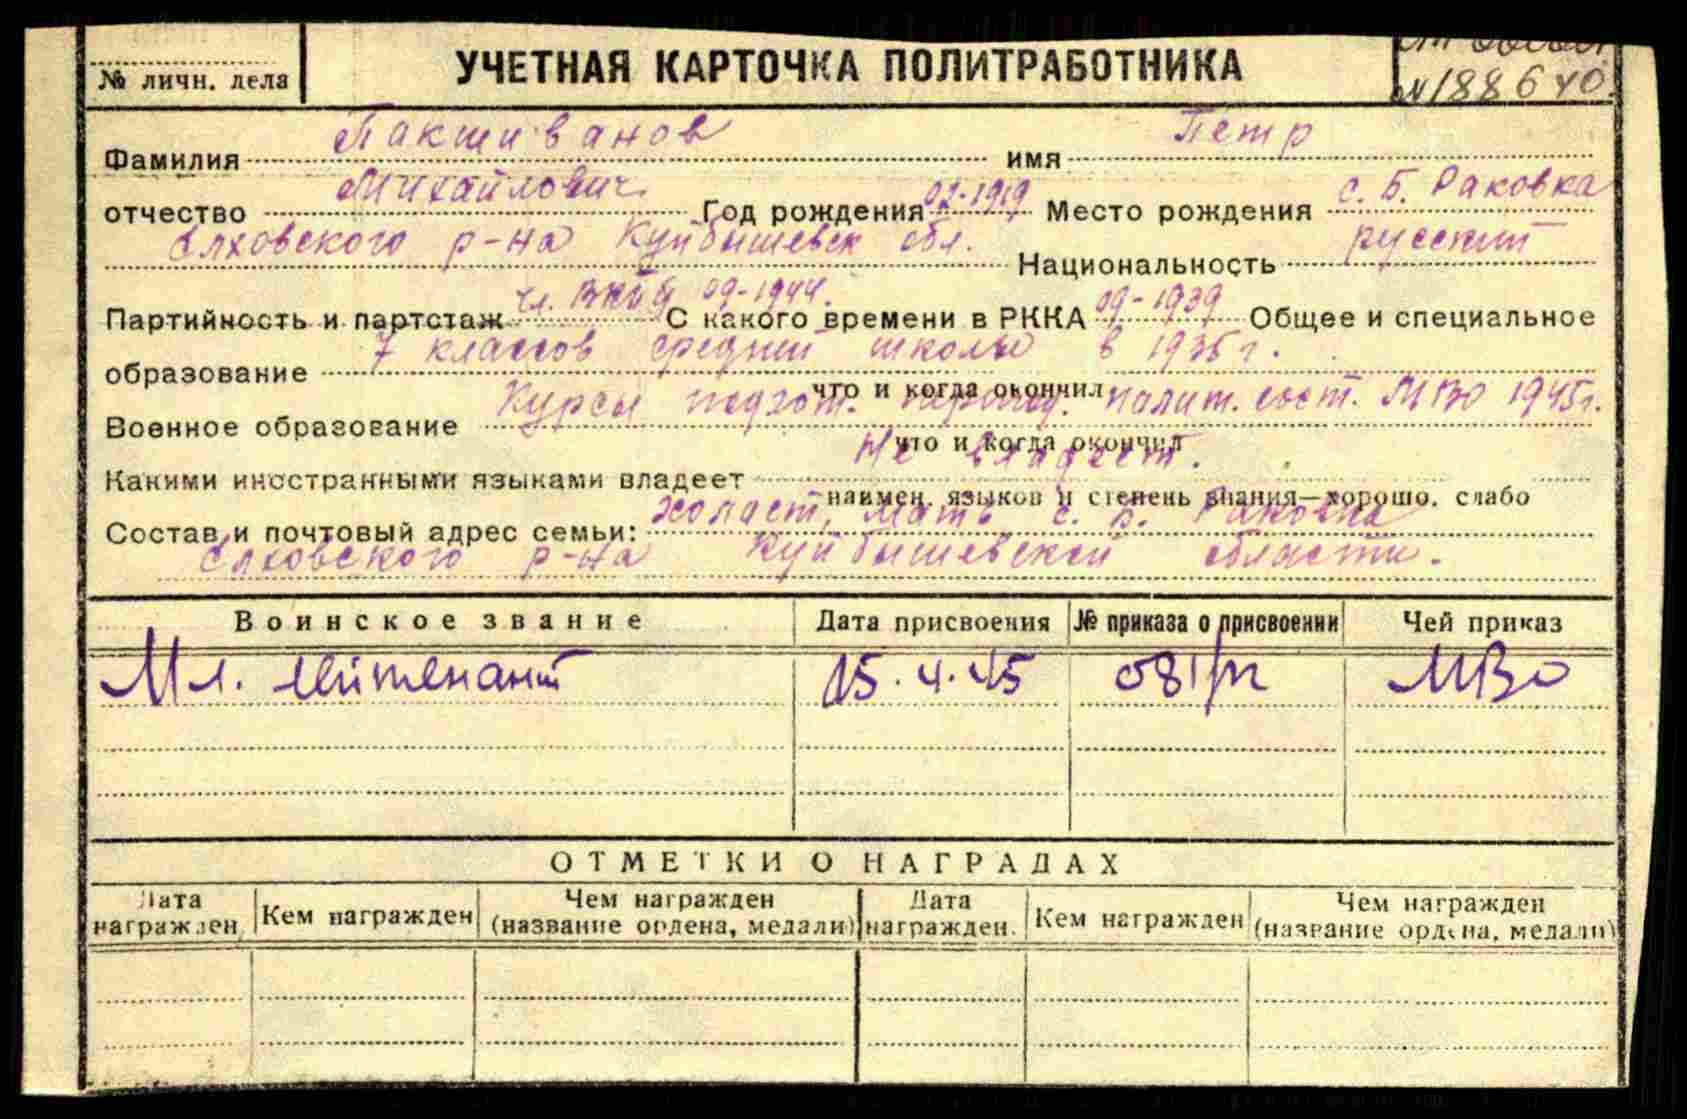 № личн. дела
УЧЕТНАЯ КАРТОЧКА ПОЛИТРАБОТНИКА
№188640.
Фамилия Пакшиванов имя Петр
отчество Михайлович Год рождения 02-1919 Место рождения с. Б. Раковка
Елховского р-на Куйбышевск обл. Национальность русский
Партийность и партстаж чл. ВКПб 09-1944. С какого времени в РККА 09-1939 Общее и специальное
образование 7 классов средней школы в 1935 г.
что и когда окончил
Военное образование Курсы подгот. полит. сост. МВО 1945г.
что и когда окончил
Какими иностранными языками владеет Не владеет.
наимен. языков и степень знания—хорошо, слабо
Состав и почтовый адрес семьи: холост, мать с. Б. Раковка
Елховского р-на Куйбышевской области.
Воинское звание Дата присвоения № приказа о присвоении Чей приказ
Мл. лейтенант 15.4.45 081/п МВО
ОТМЕТКИ О НАГРАДАХ
Дата награжден. Кем награжден Чем награжден (название ордена, медали) Дата награжден. Кем награжден Чем награжден (название ордена, медали)